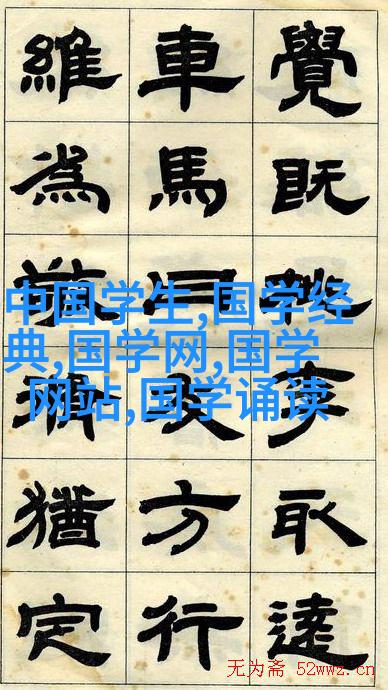 覺既李取遠
車馬方行
維為猶定
中国学生,国学经
典,国学网,国学
网站,国学诵读
无为斋 52wwz.cn